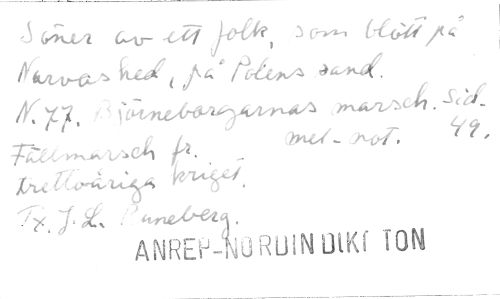 Söner av ett folk, som blött på
Narvas hed, på Polens sand.
N. 77. Björneborgarnas marsch. Sid.
Fältmarsch fr. mel-not. 49.
trettioåriga kriget.
Tx. J. L. Runeberg.
ANREP-NORDIN DIKT TON